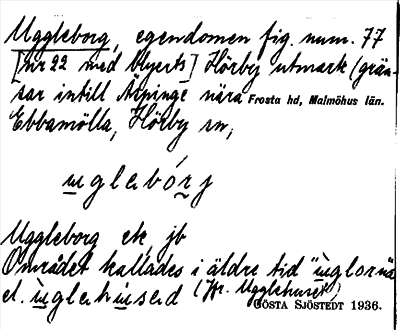 Uggleborg, egendomen fig. num. 77
[nr 22 med Obyerts] Hörby utmark (grän-
sar intill Äspinge nära Frosta hd, Malmöhus län.
Ebbamölla, Hörby sn,
uglabórj
Uggleborg ek, jb
Området kallades i äldre tid "ùglorna
el. ùglahùsad (Jfr. Ugglehuset)
GÖSTA SJÖSTEDT 1936.